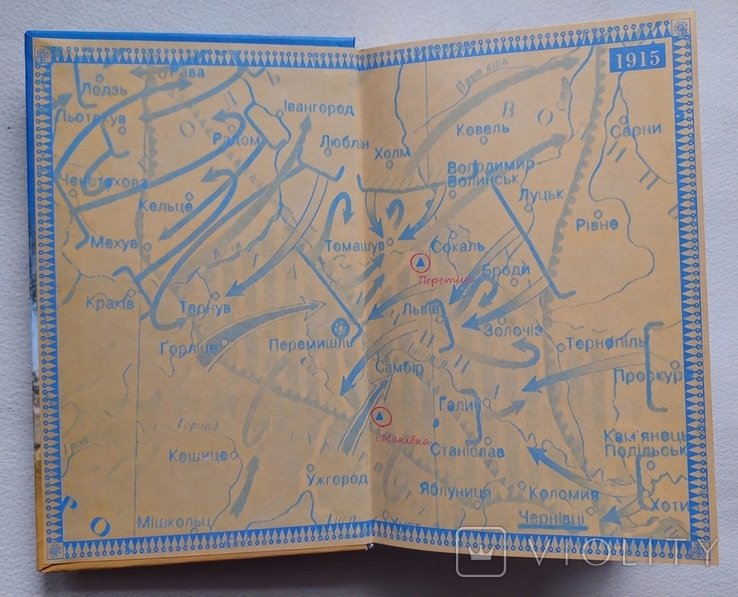 1915
Рава
Лодзь
Івангород
Припять
В О
Сарни
Радом
Люблін
Ковель
Холм
Володимир
Волинськ
Ченстохова
Кєльце
Луцьк
Рівне
Мехув
Томашув
Сокаль
Броди
Перетин
Краків
Тарнув
Львів
Золочів
Горліце
Перемишль
Тернопіль
Самбір
Проскур
Галич
г.Маківка
Станіслав
Кошице
Ужгород
Кам'янець
Подільськ
Яблуниця
Коломия
Хоти
Мішкольц
Чернівці
Хуст
VIOLITY